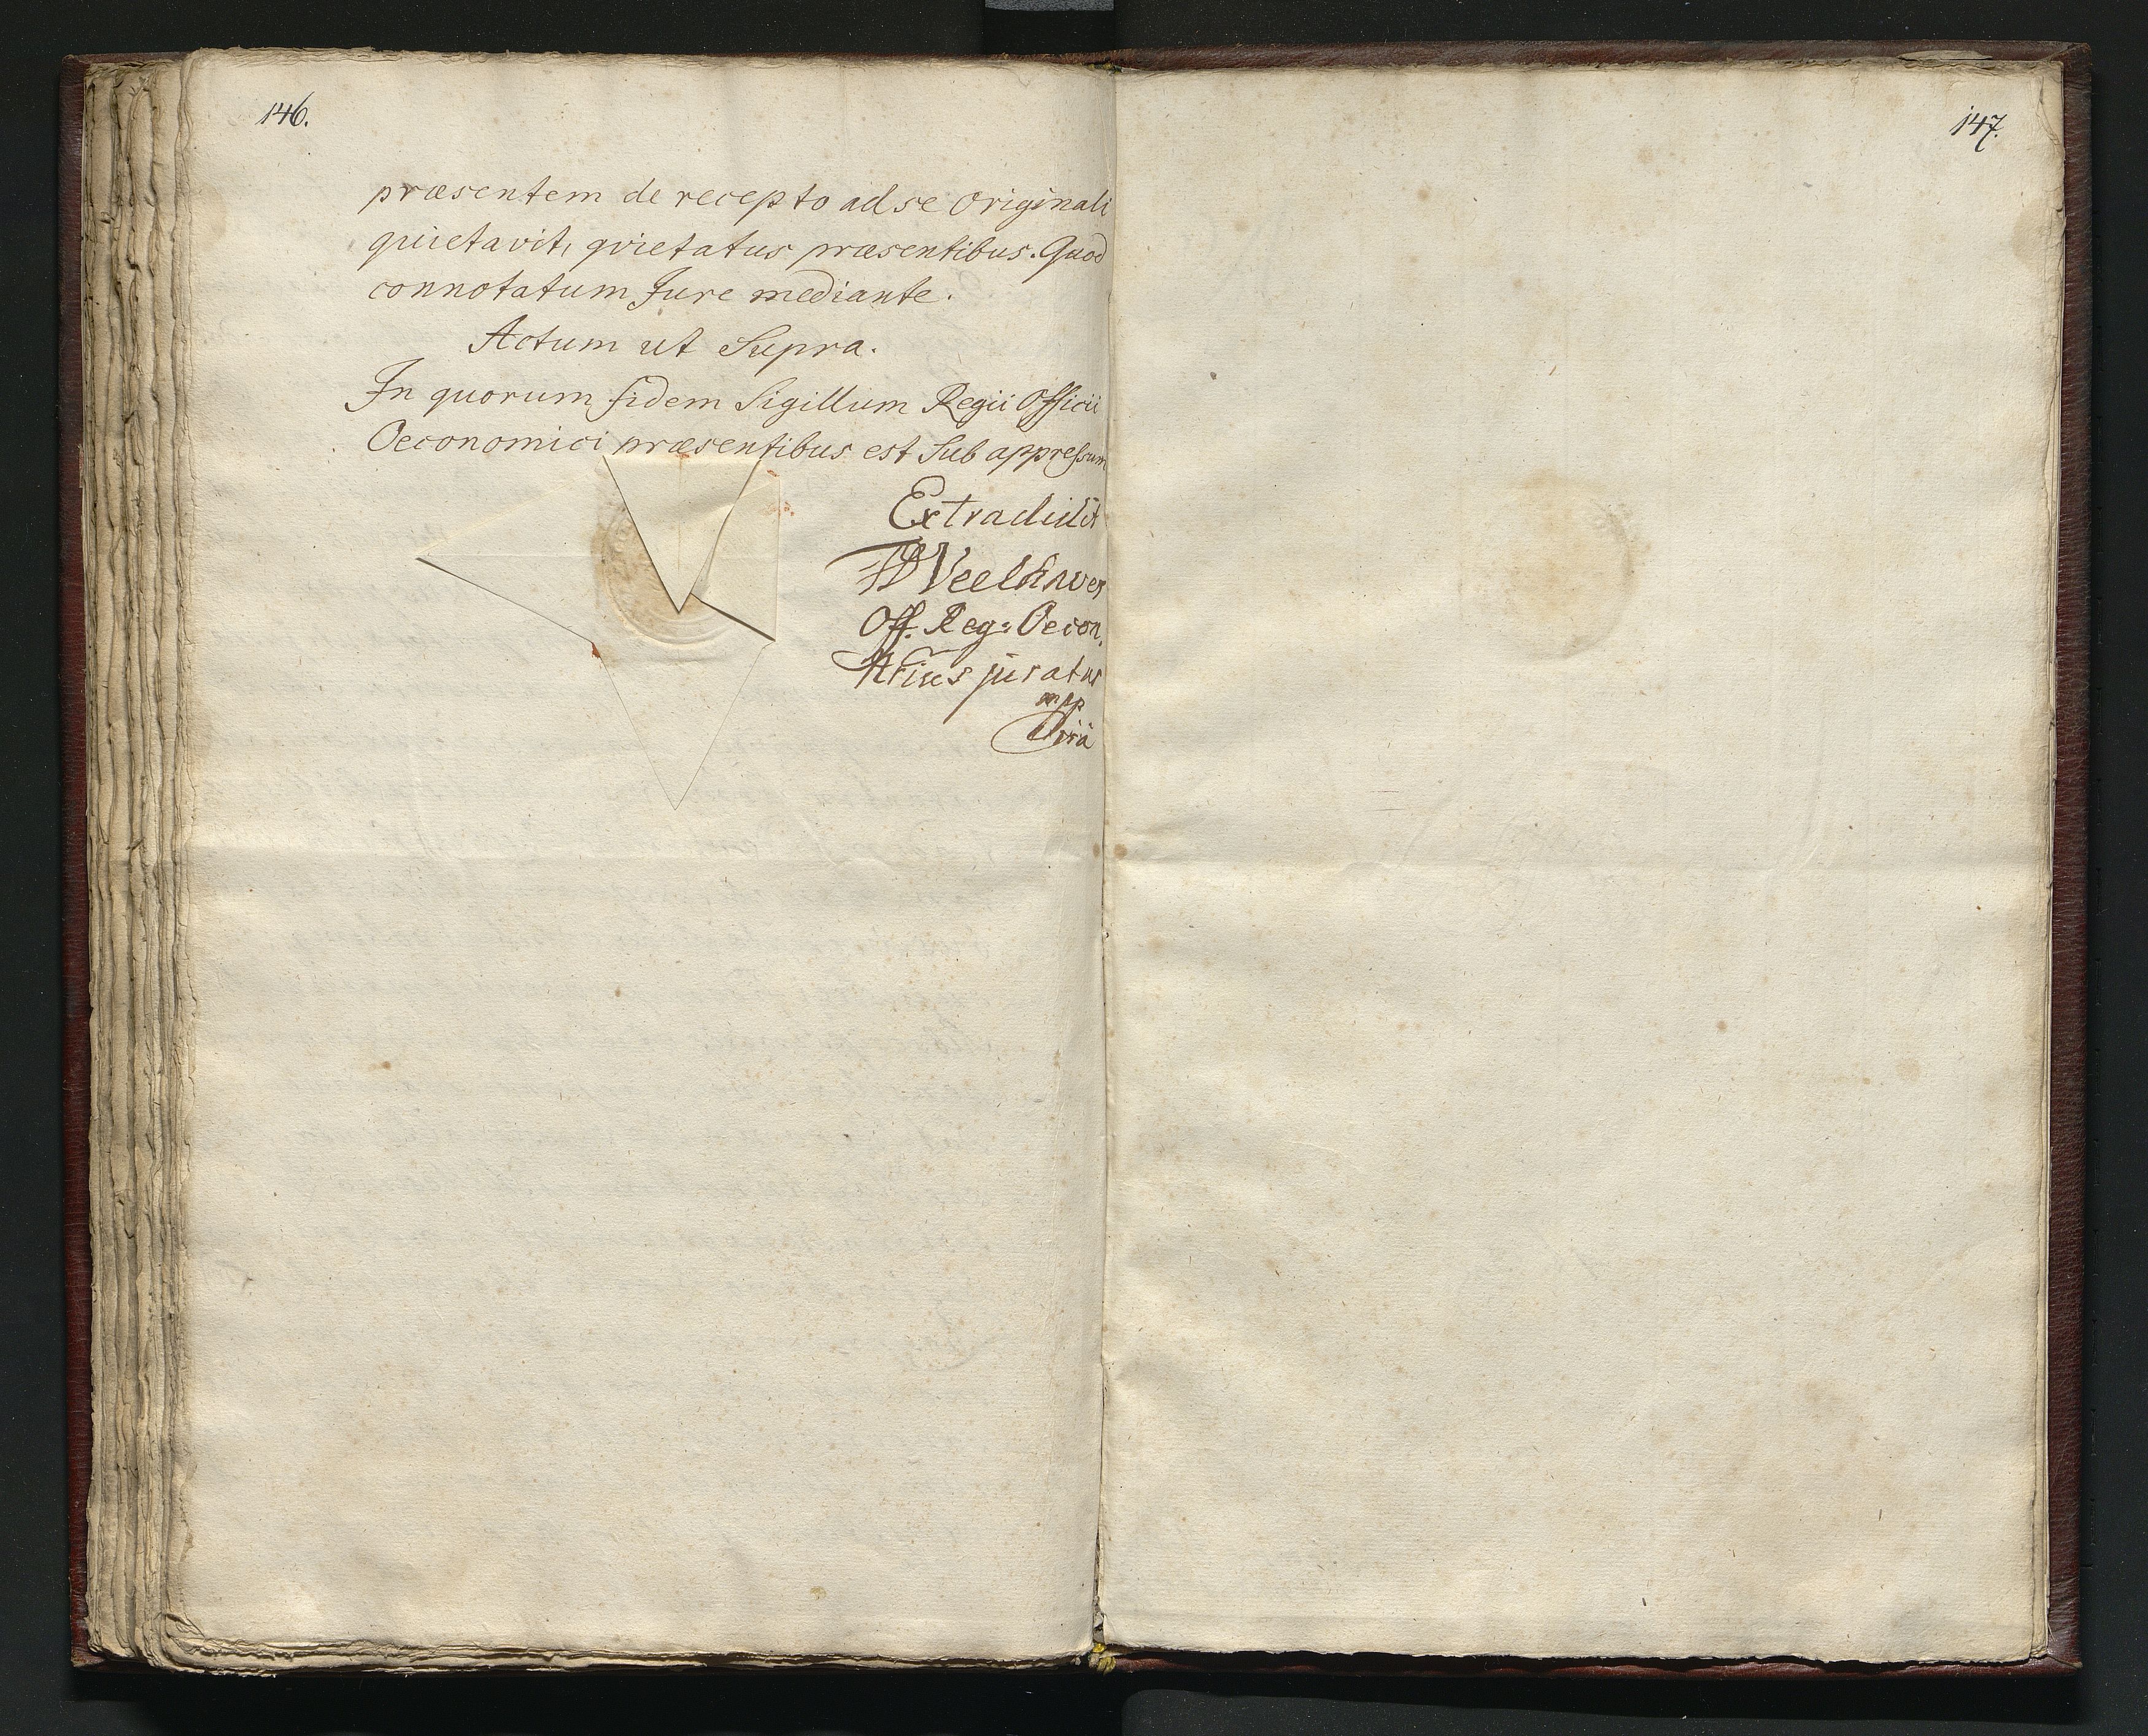 146.
præsentem de recepto ad se Originali
quietavit, qvietatus præsentibus. Quod
connotatum Jure mediante.
Actum ut Supra.
In quorum fidem Sigillum Regii Officii
Oeconomici præsentibus est Sub appressum
Extradidit
Off. Reg: Oecon.
juratus
mpp
147.